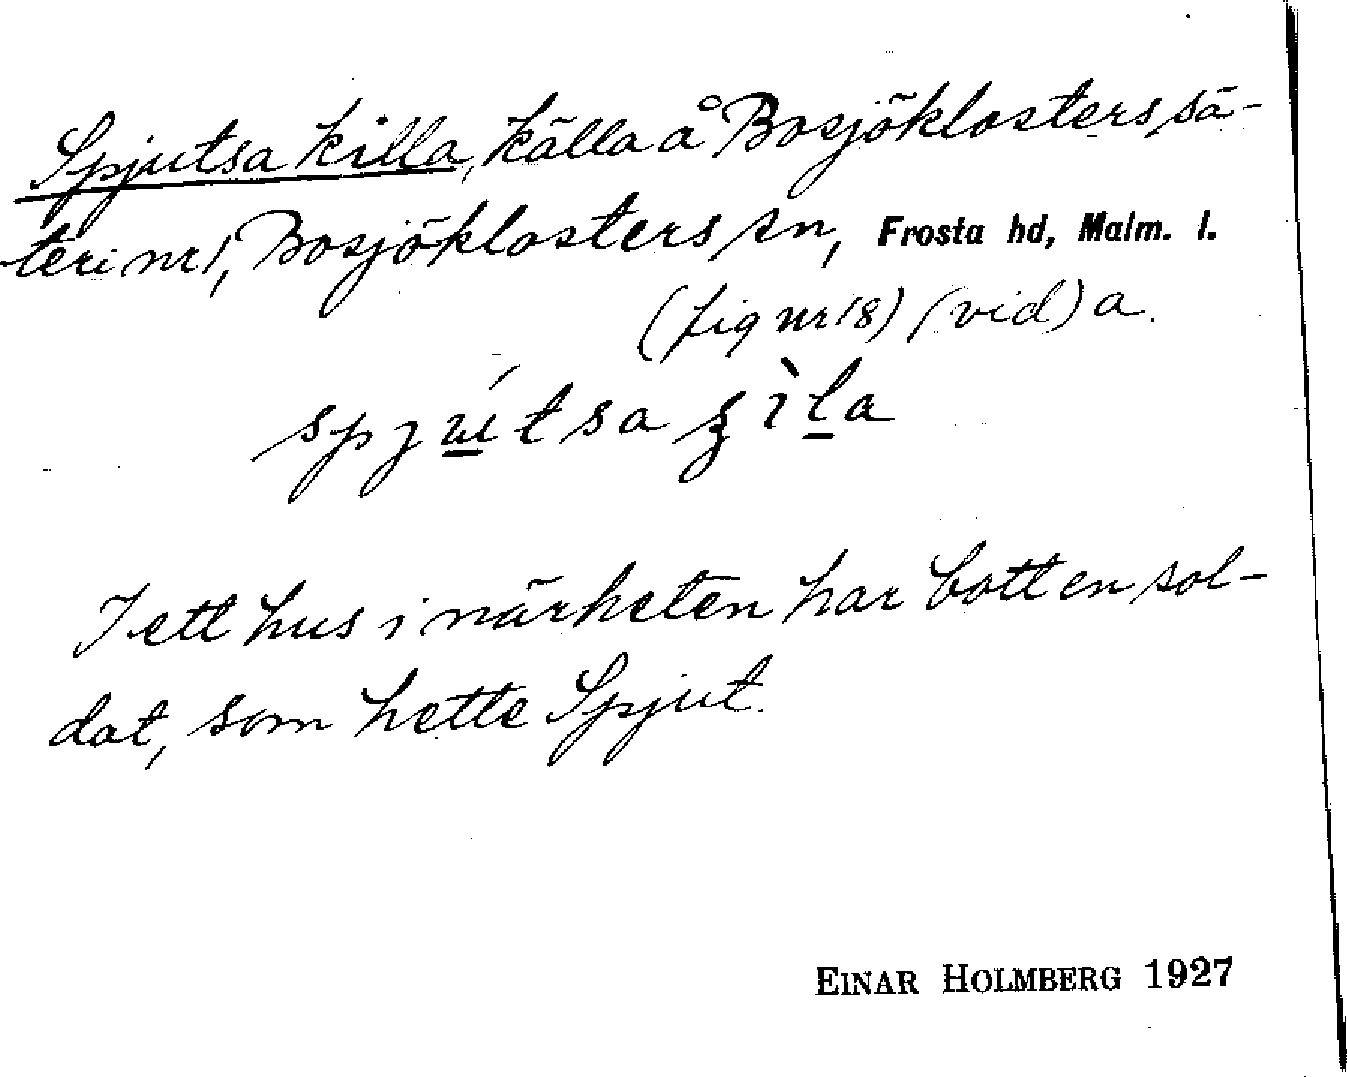 Spjutsa killa, källa å Bosjöklosters sä-
teri nr 1, Bosjöklosters sn, Frosta hd, Malm. l.
(fig nr 18) (vid) a.
I ett hus i närheten har bott en sol-
dat, som hette Spjut.
EINAR HOLMBERG 1927